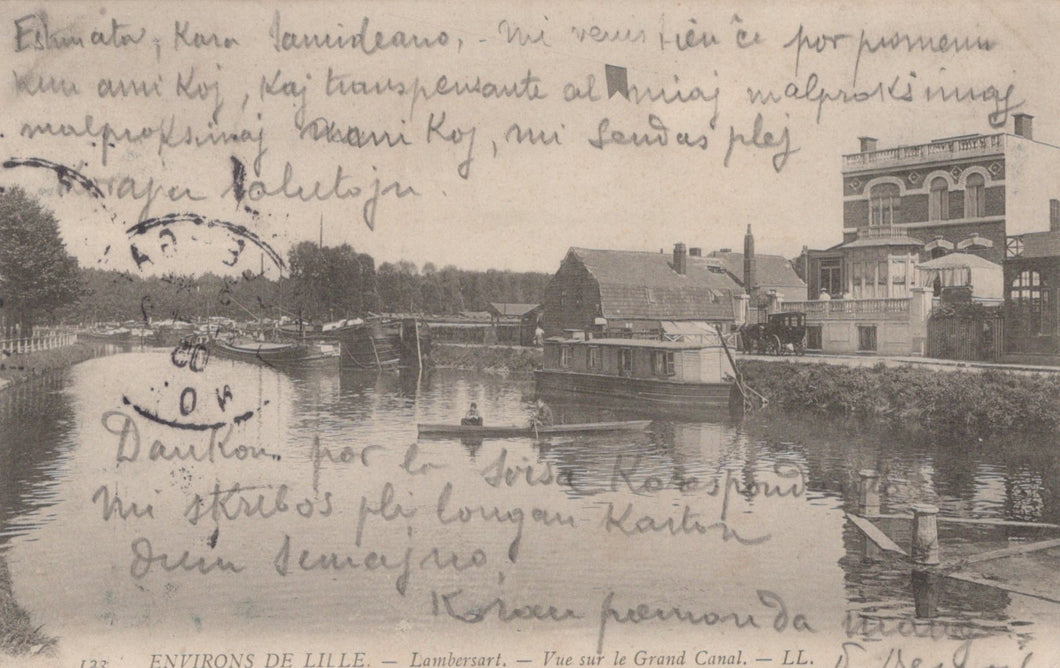 Estimata, Kara Samideano, - Mi venis tien ĉi por promeni
kun amikoj, kaj transpensante al miaj malproksimaj
malproksimaj amikoj, mi sendas plej
korajn salutojn.
Dankon por la
Mi skribos pli longan karton
dum semajno.
Koran premon da mano
123 ENVIRONS DE LILLE. — Lambersart. — Vue sur le Grand Canal. — LL.